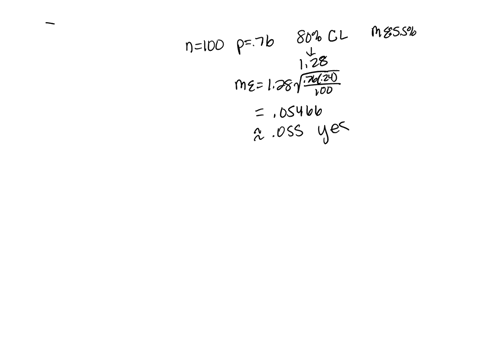 n=100 p=.76 80% CL ME 5.5%
↓
1.28
ME = 1.28√(.76(.24)/100)
= .05466
≈ .055 yes